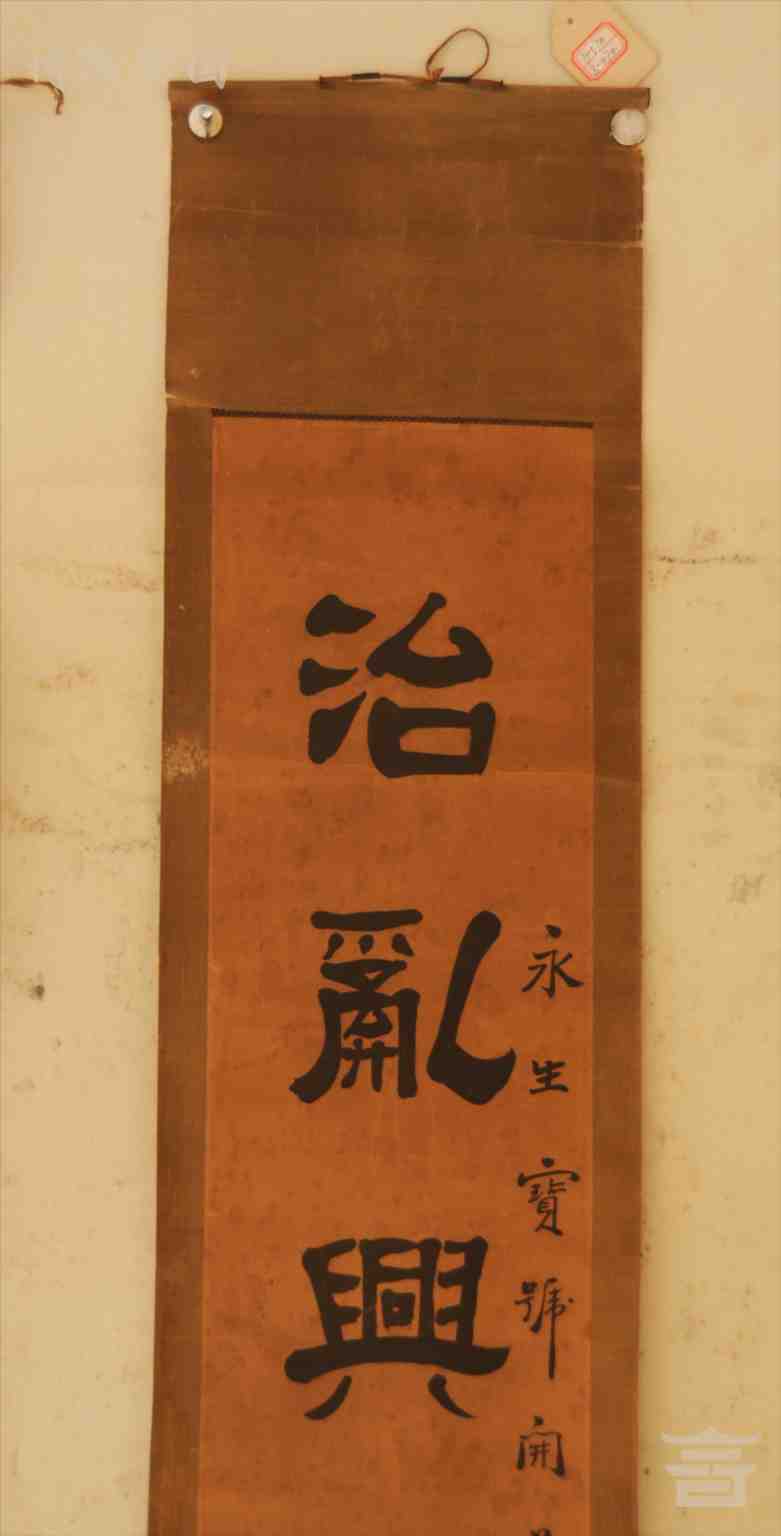 永生寶號開
治亂興